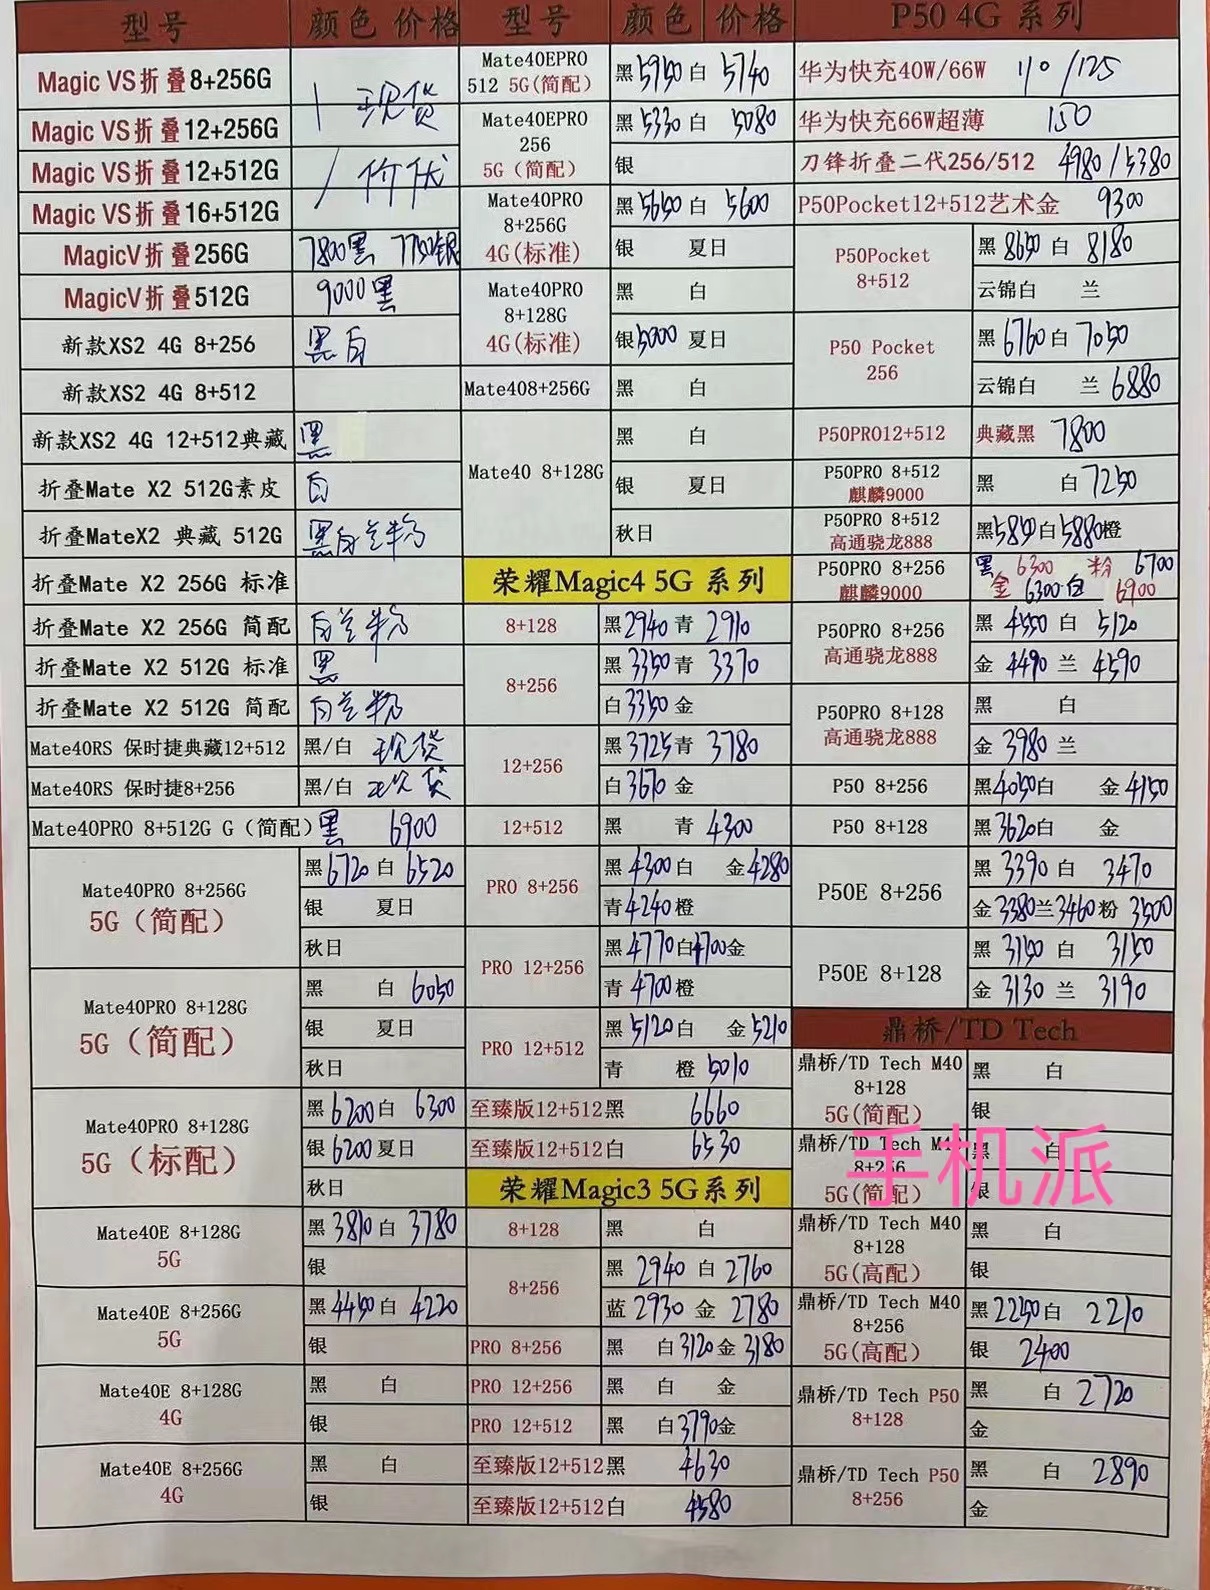 型号 颜色 价格
Magic VS折叠8+256G
Magic VS折叠12+256G 现货
Magic VS折叠12+512G
Magic VS折叠16+512G 价优
MagicV折叠256G 7800黑 7750银
MagicV折叠512G 9000黑
新款XS2 4G 8+256 黑白
新款XS2 4G 8+512
新款XS2 4G 12+512典藏 黑
折叠Mate X2 512G素皮 白
折叠MateX2 典藏 512G 黑白兰粉
折叠Mate X2 256G 标准
折叠Mate X2 256G 简配 白兰粉
折叠Mate X2 512G 标准 黑
折叠Mate X2 512G 简配 白兰粉
Mate40RS 保时捷典藏12+512 黑/白 现货
Mate40RS 保时捷8+256 黑/白 现货
Mate40PRO 8+512G G（简配） 黑 6900
Mate40PRO 8+256G
5G（简配）
黑6720白6520
银 夏日
秋日
Mate40PRO 8+128G
5G（简配）
黑 白6050
银 夏日
秋日
Mate40PRO 8+128G
5G（标配）
黑6200白6300
银6200夏日
秋日
Mate40E 8+128G
5G
黑3810白3780
银
Mate40E 8+256G
5G
黑4450白4220
银
Mate40E 8+128G
4G
黑 白
银
Mate40E 8+256G
4G
黑 白
银
型号 颜色 价格
Mate40EPRO
512 5G(简配)
黑5950白5740
Mate40EPRO
256
5G（简配）
黑5330白5080
银
Mate40PRO
8+256G
4G(标准)
黑5650白5600
银 夏日
Mate40PRO
8+128G
4G(标准)
黑 白
银5000夏日
Mate408+256G 黑 白
Mate40 8+128G
黑 白
银 夏日
秋日
荣耀Magic4 5G 系列
8+128 黑2940青2910
8+256 黑3350青3370
白3350金
12+256 黑3725青3780
白3670金
12+512 黑 青4300
PRO 8+256 黑4300白 金4280
青4240橙
PRO 12+256 黑4770白4700金
青4700橙
PRO 12+512 黑5120白 金5210
青 橙5010
至臻版12+512黑 6660
至臻版12+512白 6530
荣耀Magic3 5G系列
8+128 黑 白
8+256 黑2940白2760
蓝2930金2780
PRO 8+256 黑 白3120金3180
PRO 12+256 黑 白 金
PRO 12+512 黑 白3790金
至臻版12+512黑 4630
至臻版12+512白 4580
P50 4G 系列
华为快充40W/66W 110/125
华为快充66W超薄 150
刀锋折叠二代256/512 4980/5380
P50Pocket12+512艺术金 9300
P50Pocket
8+512
黑8650白8180
云锦白 兰
P50 Pocket
256
黑6760白7050
云锦白 兰6880
P50PRO12+512 典藏黑 7800
P50PRO 8+512
麒麟9000
黑 白7250
P50PRO 8+512
高通骁龙888
黑5850白5880橙
P50PRO 8+256
麒麟9000
黑6300 粉6700
金6300白6900
P50PRO 8+256
高通骁龙888
黑4550白5120
金4490兰4590
P50PRO 8+128
高通骁龙888
黑 白
金3980兰
P50 8+256 黑4050白 金4150
P50 8+128 黑3620白 金
P50E 8+256 黑3390白3470
金3380兰3460粉3500
P50E 8+128 黑3150白3150
金3130兰3190
鼎桥/TD Tech
鼎桥/TD Tech M40
8+128
5G(简配)
黑 白
银
鼎桥/TD Tech M40
8+256
5G(简配)
黑 白
银
手机派
鼎桥/TD Tech M40
8+128
5G(高配)
黑 白
银
鼎桥/TD Tech M40
8+256
5G(高配)
黑2250白2210
银2400
鼎桥/TD Tech P50
8+128
黑 白2720
金
鼎桥/TD Tech P50
8+256
黑 白2890
金